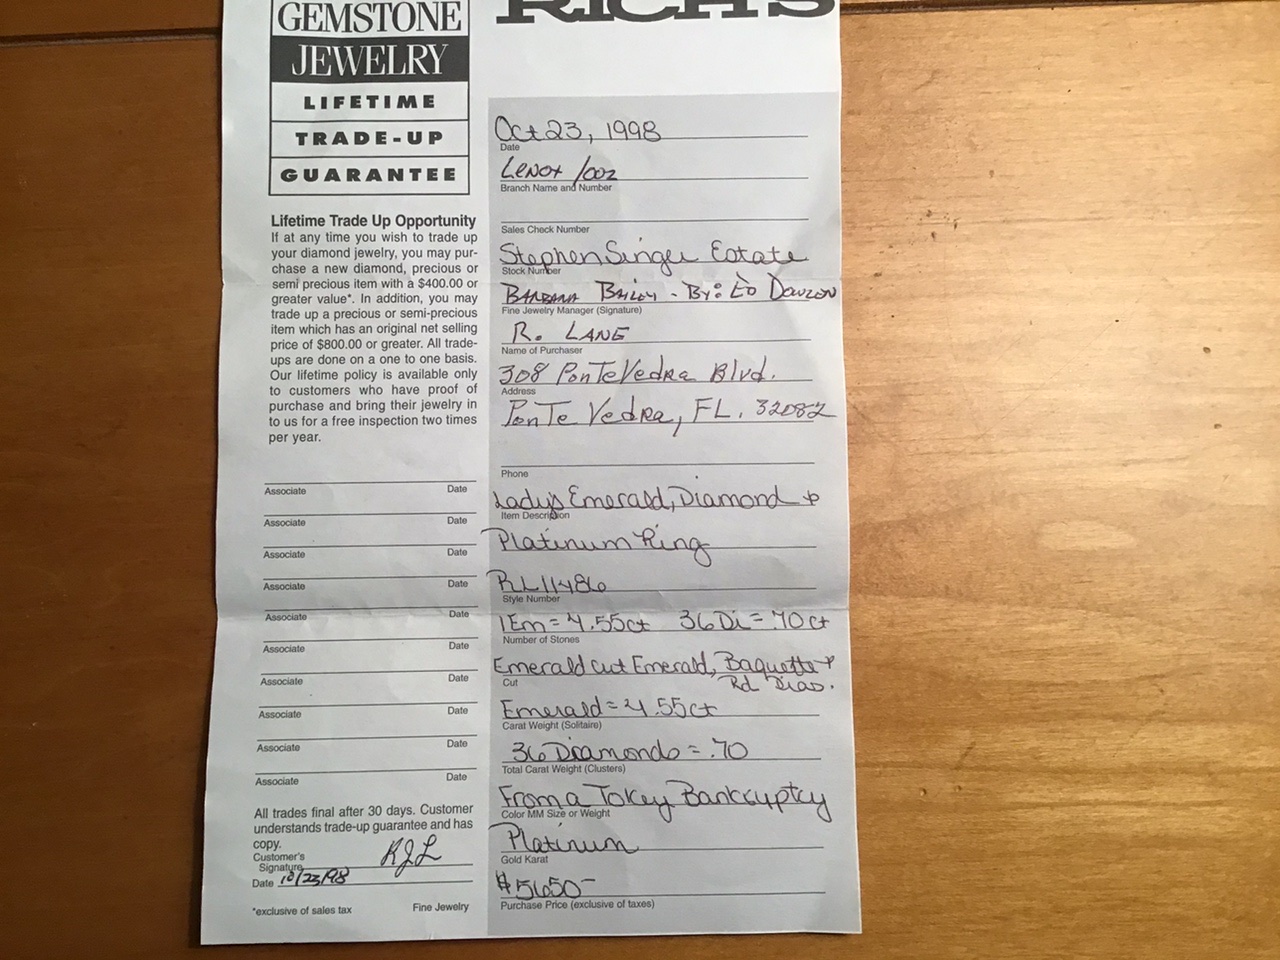 GEMSTONE
JEWELRY
LIFETIME
TRADE-UP
GUARANTEE
Lifetime Trade Up Opportunity
If at any time you wish to trade up
your diamond jewelry, you may pur-
chase a new diamond, precious or
semi precious item with a $400.00 or
greater value*. In addition, you may
trade up a precious or semi-precious
item which has an original net selling
price of $800.00 or greater. All trade-
ups are done on a one to one basis.
Our lifetime policy is available only
to customers who have proof of
purchase and bring their jewelry in
to us for a free inspection two times
per year.
Associate Date
Associate Date
Associate Date
Associate Date
Associate Date
Associate Date
Associate Date
Associate Date
Associate Date
Associate Date
All trades final after 30 days. Customer
understands trade-up guarantee and has
copy.
Customer's
Signature RJL
Date 10/23/98
*exclusive of sales tax Fine Jewelry
RICH'S
Oct 23, 1998
Date
Lenox /002
Branch Name and Number
Sales Check Number
Stephen Singer Estate
Stock Number
BARBARA BAILEY - By: ED
Fine Jewelry Manager (Signature)
R. LANE
Name of Purchaser
308 PonTeVedRa Blvd.
Address
PonTe VedRa, FL. 32082
Phone
Ladys Emerald, Diamond &
Item Description
Platinum Ring
RL11486
Style Number
1Em = 4.55ct 36Di = .70ct
Number of Stones
Emerald cut Emerald, Baguette &
Rd Dias.
Cut
Emerald = 4.55ct
Carat Weight (Solitaire)
36 Diamonds = .70
Total Carat Weight (Clusters)
From a Tokey Bankruptcy
Color MM Size or Weight
Platinum
Gold Karat
$5650-
Purchase Price (exclusive of taxes)